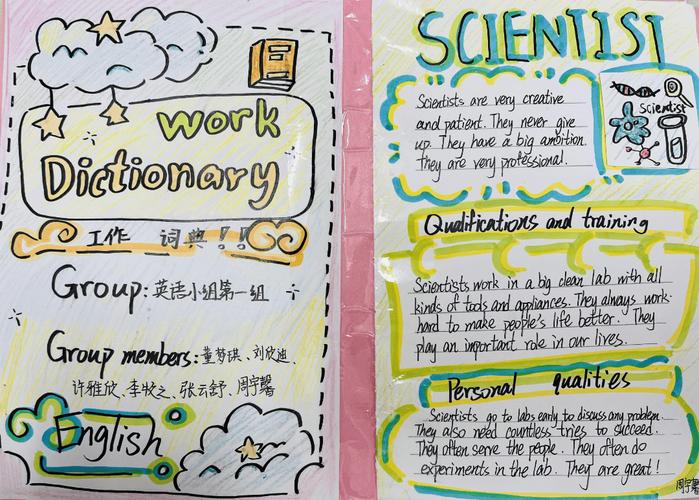 work
Dictionary
工作 词典!!
Group: 英语小组第一组
Group members: 董梦琪、刘欣迪、
许雅欣、李牧之、张云舒、周宇馨
English
SCIENTIST
Scientists are very creative
and patient. They never give
up. They have a big ambition.
they are very professional.
Scientist
Qualifications and training
Scientists work in a big clean lab with all
kinds of tools and appliances. They always work
hard to make people's life better. They
play an important role in our lives.
Personal qualities
Scientists go to labs early to discuss any problem.
They also need countless tries to succeed.
They often serve the people. They often do
experiments in the lab. They are great!
周宇馨